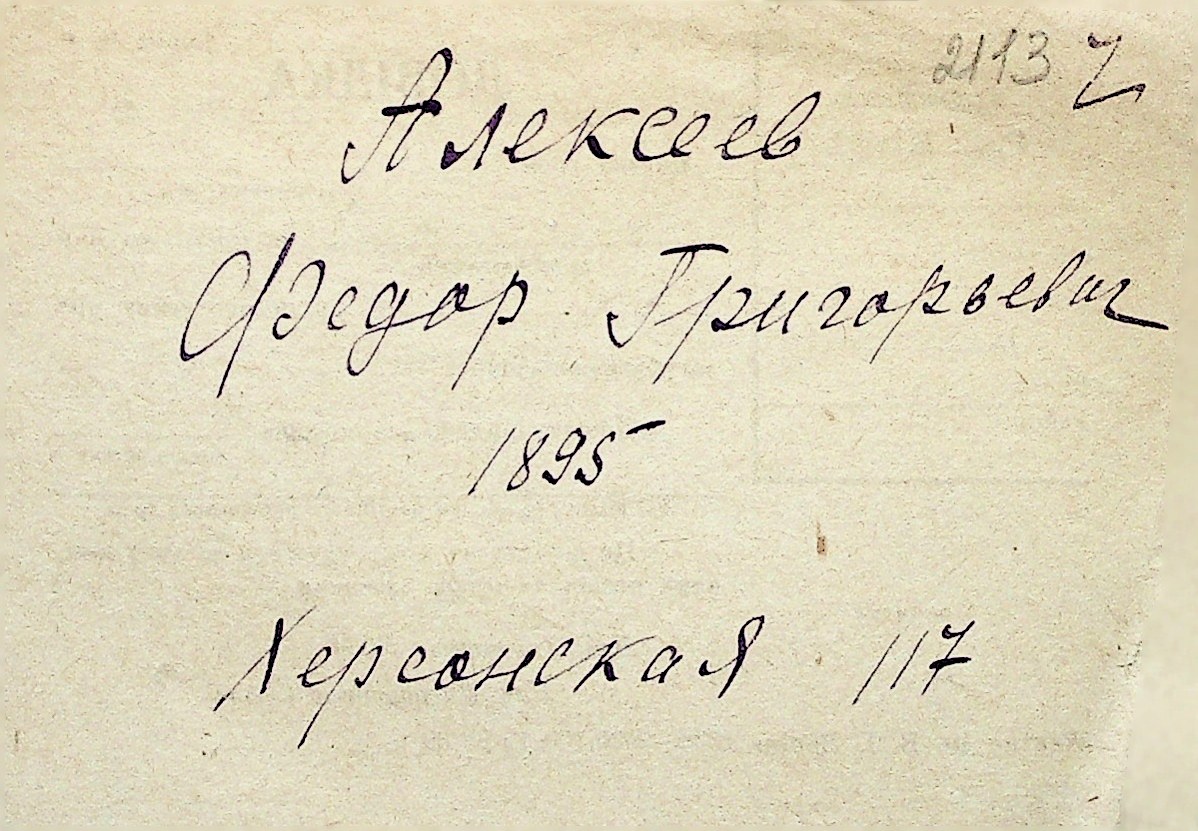 2113
Алексеев
Федор Григорьевич
1895
Херсонская 117